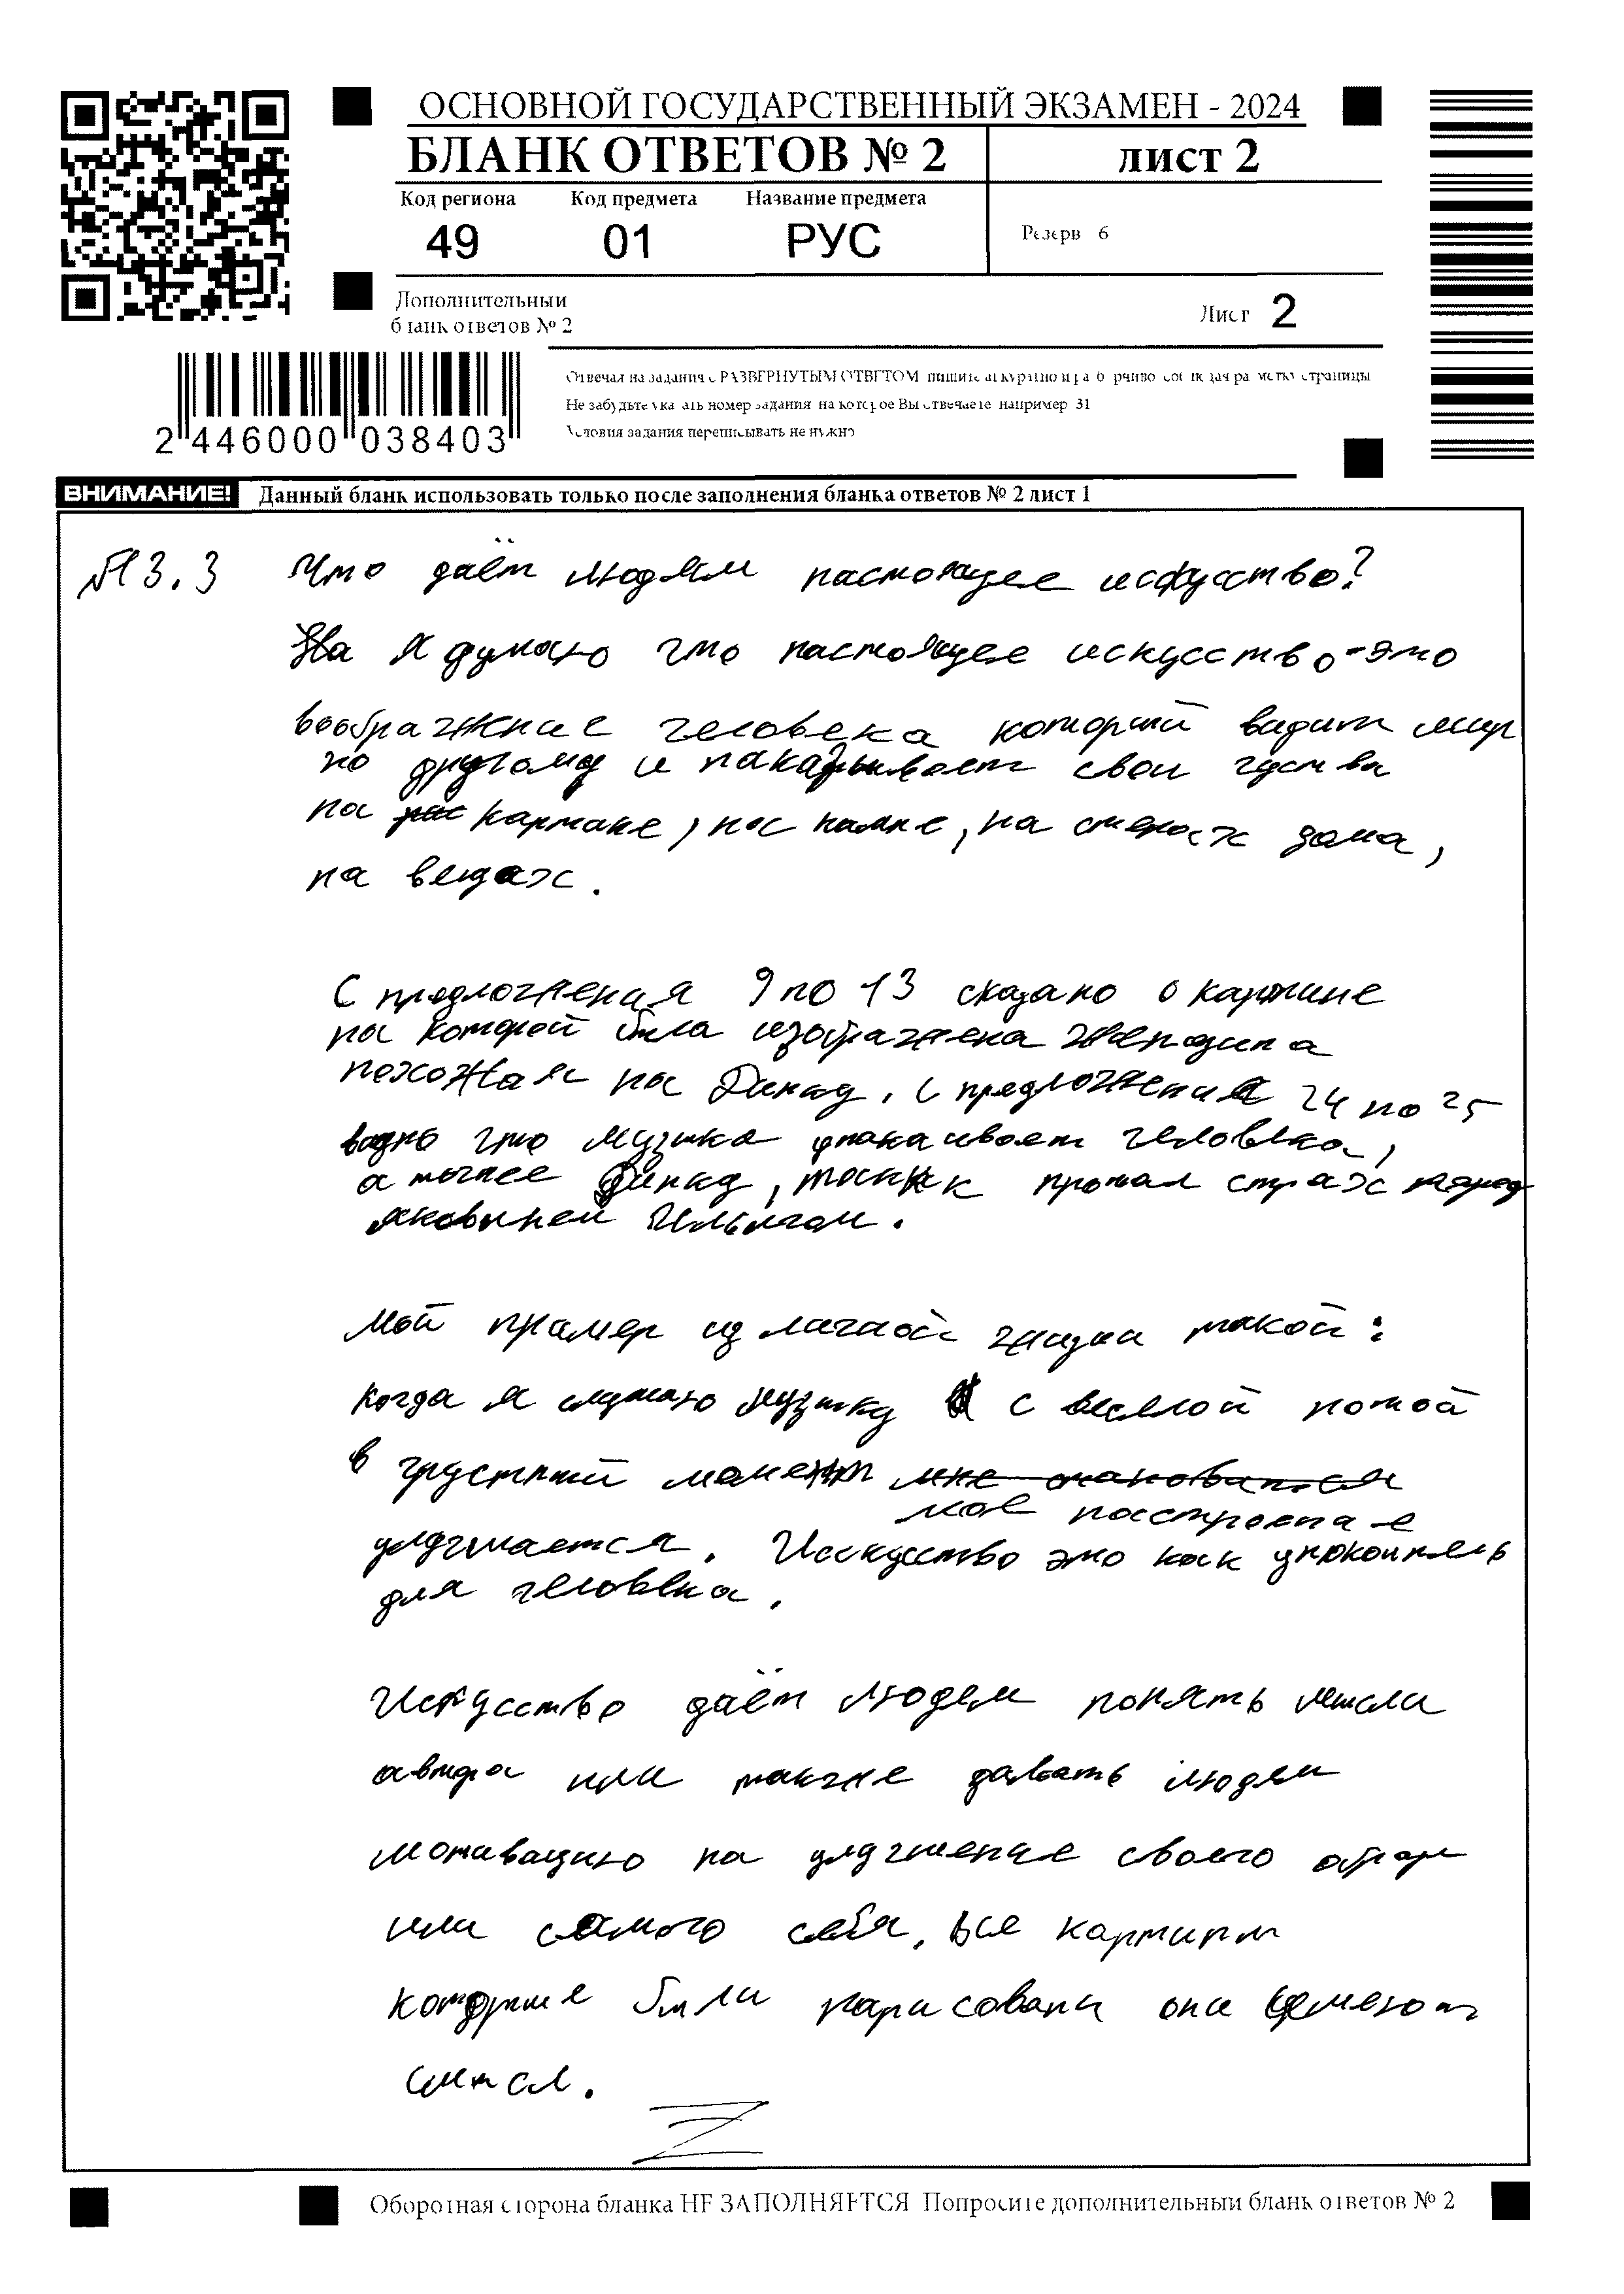 ОСНОВНОЙ ГОСУДАРСТВЕННЫЙ ЭКЗАМЕН - 2024
БЛАНК ОТВЕТОВ № 2
лист 2
Код региона Код предмета Название предмета
49 01 РУС
Резерв 6
Дополнительный
бланк ответов № 2
Лист 2
Отвечая на задания с РАЗВЕРНУТЫМ ОТВЕТОМ пишите аккуратно и разборчиво соблюдая разметку страницы
Не забудьте указать номер задания на которое Вы отвечаете например 31
Условия задания переписывать не нужно
2 446000 038403
ВНИМАНИЕ! Данный бланк использовать только после заполнения бланка ответов № 2 лист 1
№13.3 Что даём людям настоящее искусство?
На Я думаю что настоящее искусство-это
воображние человека который видит мир
по другому и паказывает свои чуства
на картине, на , на стенах дома,
на вещах.
С предложения 9 по 13 сказано о картине
на которой была изображена женщина
похожая на Динку. С предложения 24 по 25
видно что музыка упакаивает человека,
а точнее Динку, так как пропал страх перед
яковыней Ильичом.
Мой пример из личной жизни такой:
когда я слушаю музыку с весёлой нотой
в грустный момент мне становится
моё насстроение
улудчшается. Исскуство это как успокоитель
для человека.
Искусство даёт людям понять мысли
автора или также давать людям
мотивацию на улудчшение своего
или самого себя. Все картины
которые были нарисованы они имеют
смысл.
Z
Оборотная сторона бланка НЕ ЗАПОЛНЯЕТСЯ Попросите дополнительный бланк ответов № 2